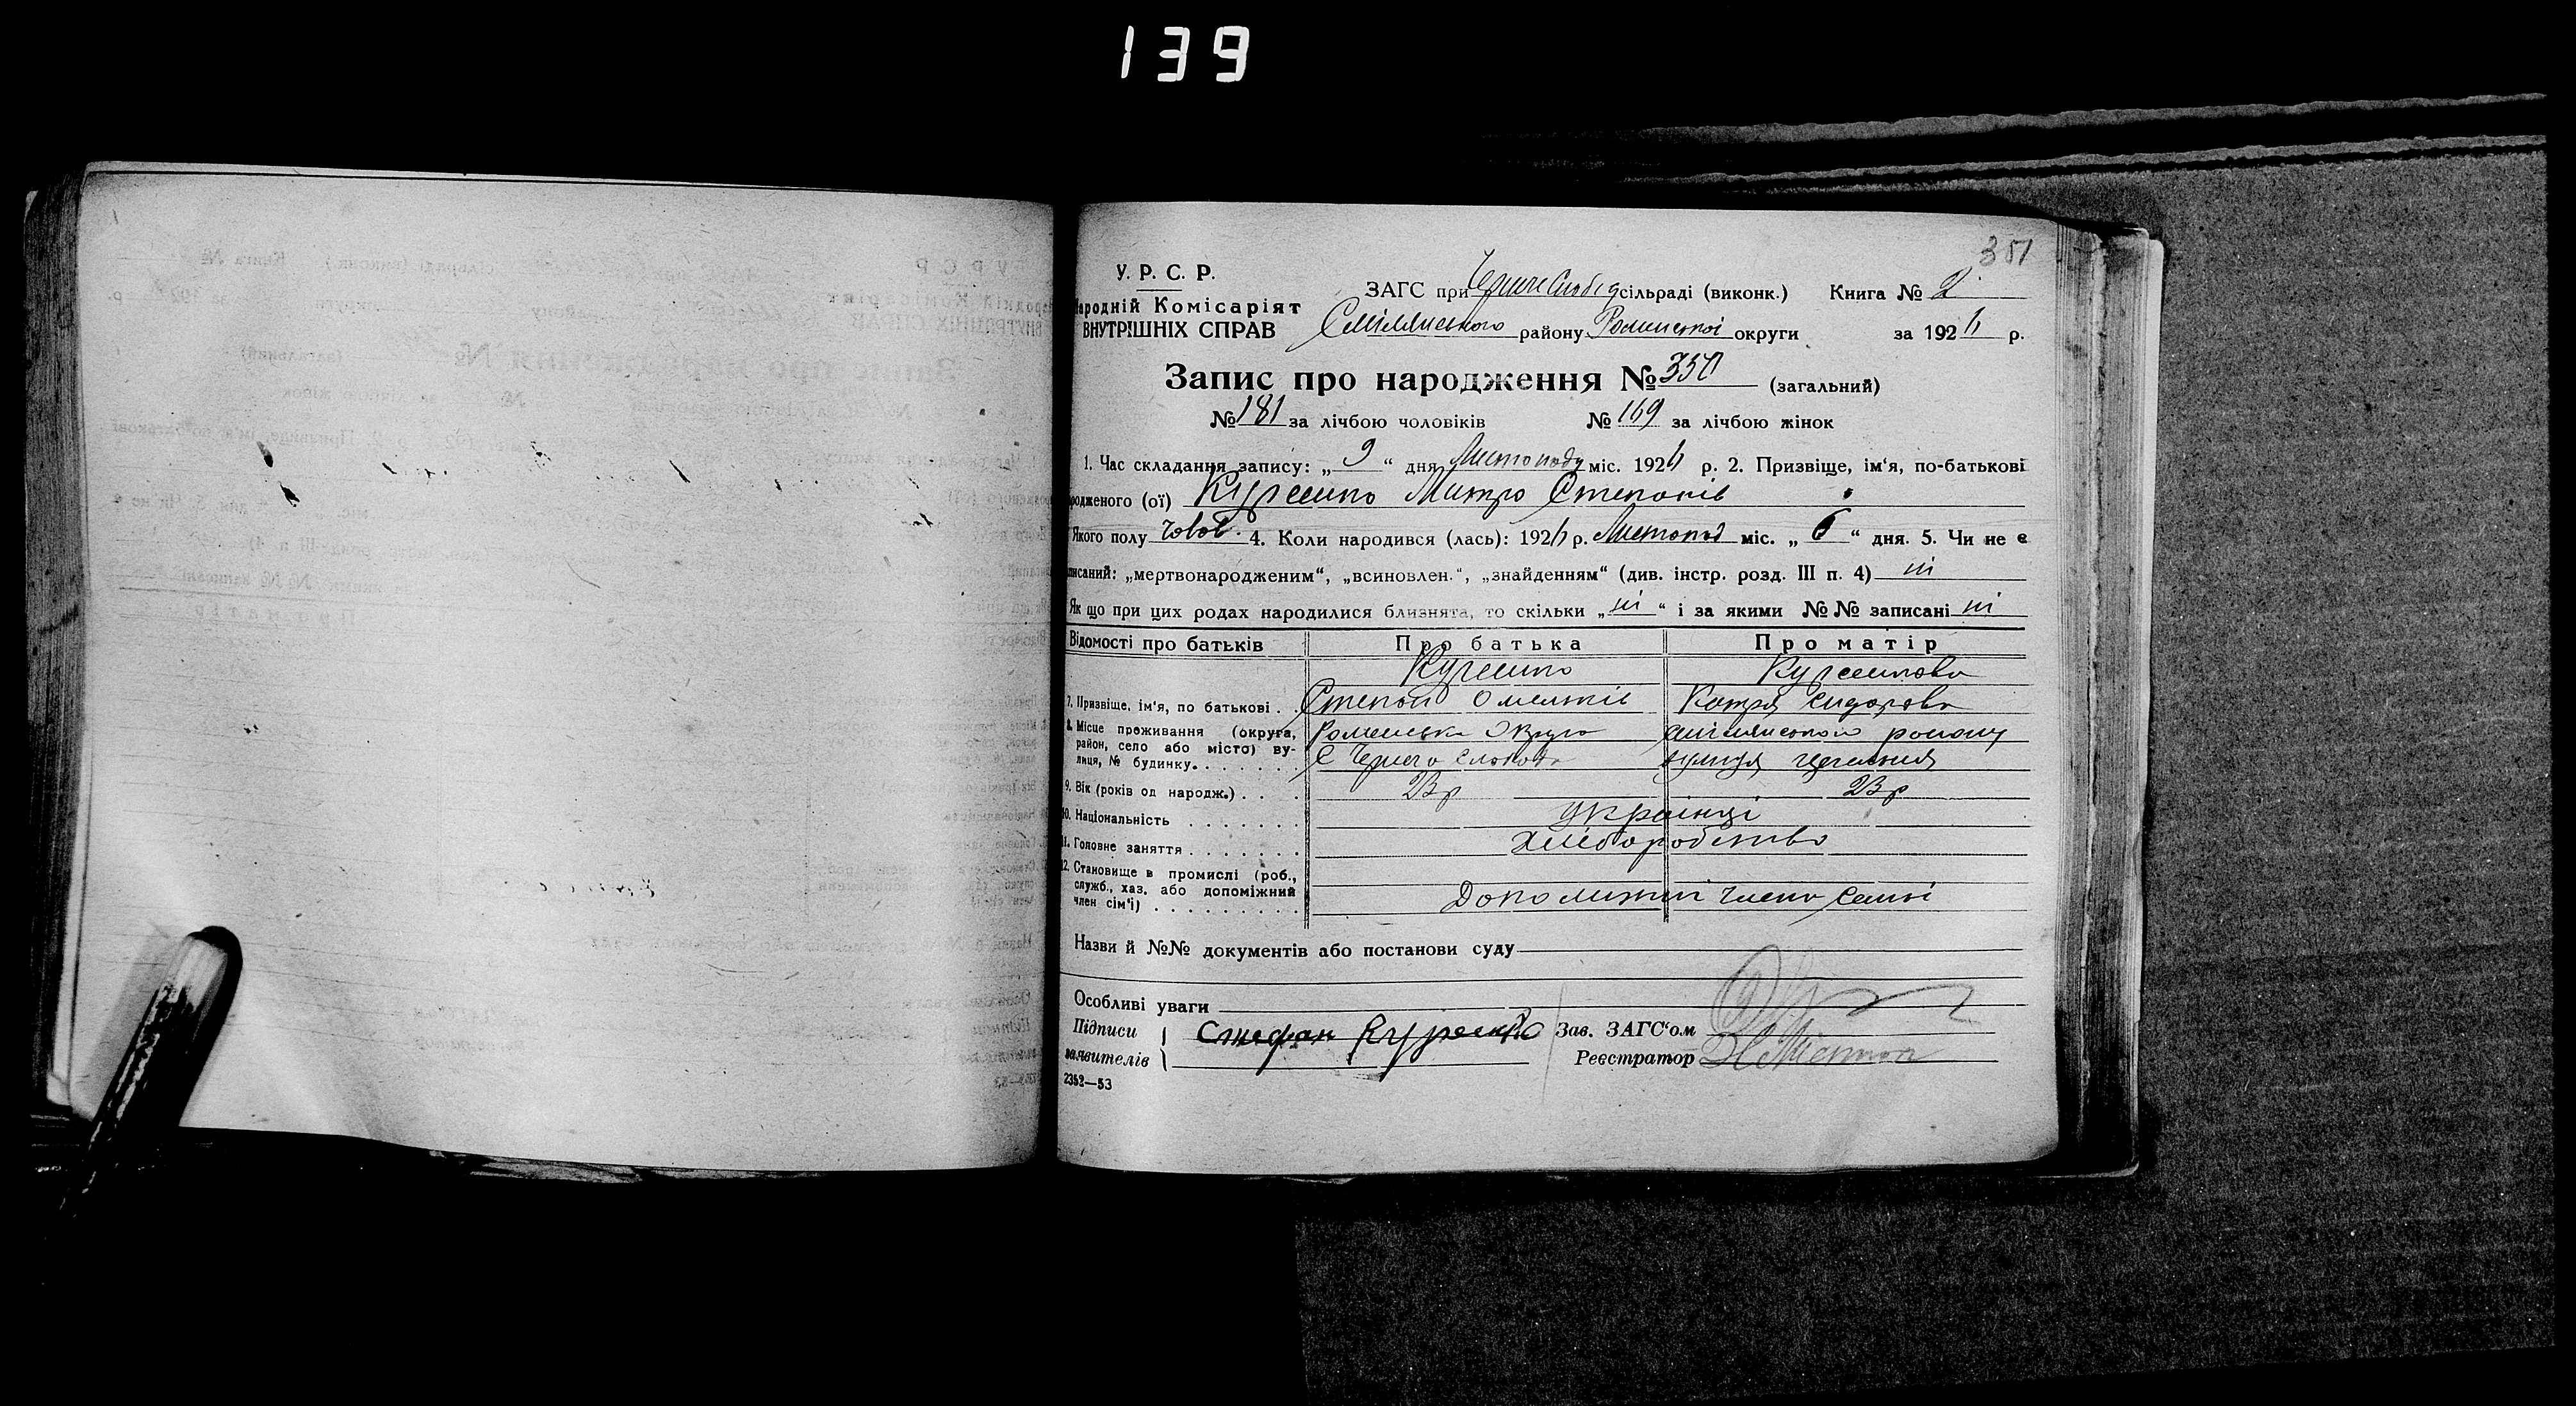 139
351
У. Р. С. Р.
Народній Комісаріят
ВНУТРІШНІХ СПРАВ
ЗАГС при Черчеслобід сільраді (виконк.) Книга № 2
Смілянського району Роменської округи за 1926 р.
Запис про народження № 350 (загальний)
№ 181 за лічбою чоловіків № 169 за лічбою жінок
1. Час складання запису: „ 9 “ дня Листопаду міс. 1926 р. 2. Призвіще, ім‘я, по-батькові
родженого (ої) Куренко Митро Степанів
Якого полу Човов. 4. Коли народився (лась): 1926 р. Листопад міс. „ 6 “ дня. 5. Чи не є
писаний: „мертвонародженим“, „всиновлен.“, „знайденням“ (див. інстр. розд. III п. 4) ні
Як що при цих родах народилися близнята, то скільки „ ні “ і за якими №№ записані ні
Відомості про батьків Про батька Про матір
Куренко Куренкова
7. Призвіще, ім‘я, по батькові . . Степан Омельків Катря Сидорова
8. Місце проживання (округа, район, село або місто) ву-
лиця, № будинку. . . . . . .
Роменська Округа Смілянського району
С Черча Слобода вулиця
9. Вік (років од народж.) . . . . 23 р 23 р
10. Національність . . . . . . . Українці
11. Головне заняття . . . . . . . Хліборобство
12. Становище в промислі (роб.,
служб., хаз. або допоміжний
член сім‘ї) . . . . . . . . . Допоміжні члени семьі
Назви й №№ документів або постанови суду
Особливі уваги
Підписи Стефан Куренко Зав. ЗАГС‘ом
заявителів Реєстратор
2352—53